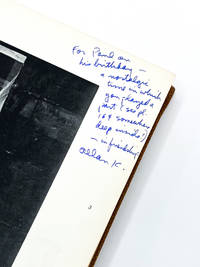 For Paul on
his birthday —
a nostalgic
tome in which
you played a
part (see pl.
64 somewhere
deep inside!)
— in friendship
Allan K.